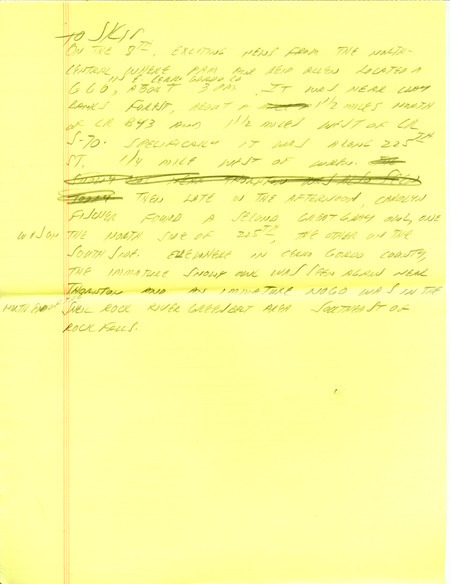 TO SKIP
ON THE 8TH, EXCITING NEWS FROM THE NORTH-
CENTRAL WHERE PAM AND REID ALLEN LOCATED A
IN E. CERRO GORDO CO
GGO, ABOUT 3 PM. IT WAS NEAR CLAY
BANKS FOREST, ABOUT A 1 1/2 MILES NORTH
OF CR B43 AND 1 1/2 MILES WEST OF CR
S-70. SPECIFICALLY IT WAS ALONG 225TH
ST. 1/4 MILE WEST OF
THEN LATE IN THE AFTERNOON, CAROLYN
FISCHER FOUND A SECOND GREAT GRAY OWL, ONE
THE NORTH SIDE OF 225TH, THE OTHER ON THE
SOUTH SIDE. ELSEWHERE IN CERRO GORDO COUNTY,
THE IMMATURE SNOWY OWL WAS SEEN AGAIN NEAR
THORNTON AND AN IMMATURE NOGO WAS IN THE
SHELL ROCK RIVER GREENBELT AREA SOUTHEAST OF
ROCK FALLS.